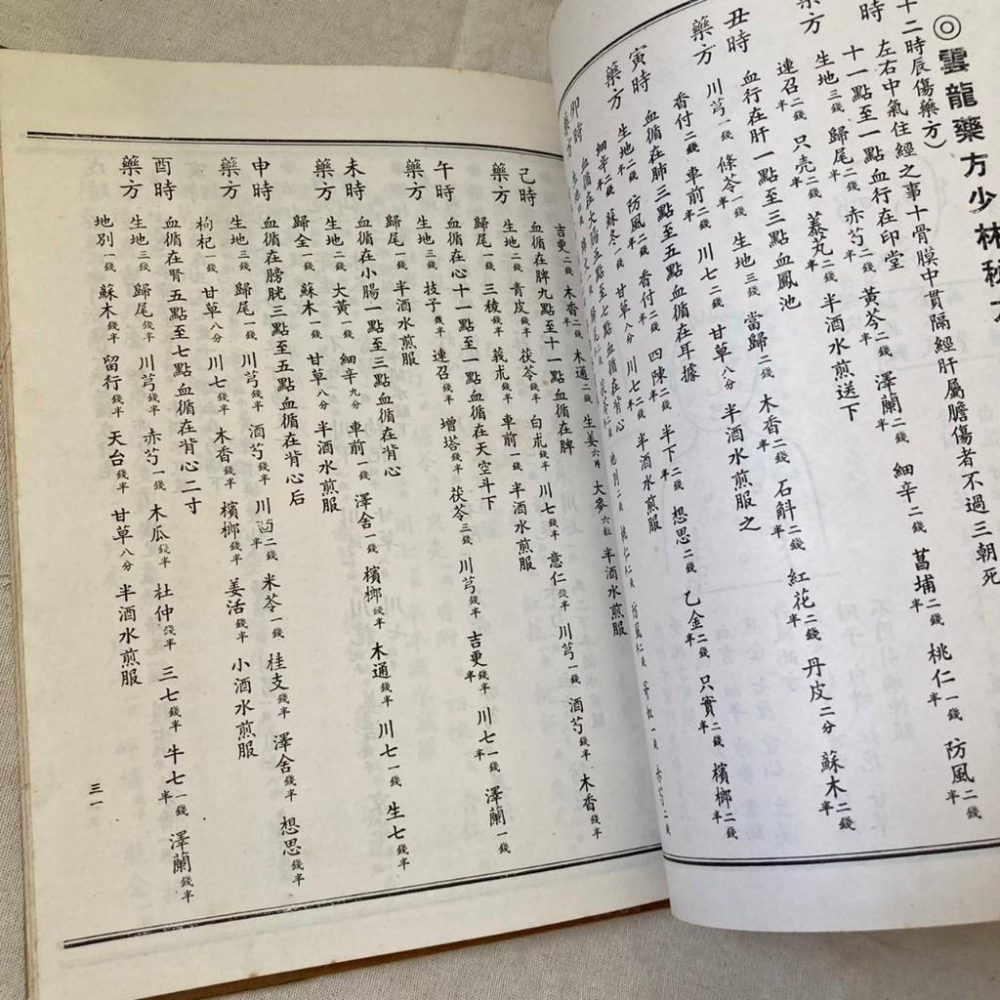 ◎雲龍藥方少林秘
十二時辰傷藥方）
左右中氣住經之事十骨膜中貫隔經肝屬膽傷者不過三朝死
時　十一點至一點血行在印堂
方　生地三錢　歸尾二錢　赤芍二錢半　黃芩二錢半　澤蘭二錢半　細辛二錢　菖埔二錢半　桃仁一錢半　防風二錢半
連召二錢　只壳二錢半　蒌丸二錢半　半酒水煎送下
丑時　血行在肝一點至三點血鳳池
藥方　川芎一錢　條苓一錢　生地三錢　當歸二錢　木香二錢半　石斛二錢半　紅花二錢半　丹皮二分　蘇木二錢半
香付二錢　車前二錢　川七二錢　甘草八分　半酒水煎服之
寅時　血循在肺三點至五點血循在耳據
藥方　生地二錢　防風二錢半　香付二錢　四陳二錢半　半下二錢　想思二錢　乙金二錢半　只實二錢半　檳榔二錢半
細辛二錢　蘇冬一錢　甘草八分　川七二錢半　半酒水煎服
卯時　血循在大腸五點至七點血循在背心
吉更二錢　木香二錢　木通二錢　生姜六片　大參六粒　半酒水煎服
己時　血循在脾九點至十一點血循在脾
藥方　生地二錢　青皮錢半　茯苓錢半　白朮錢半　川七錢半　意仁錢半　川芎一錢　酒芍錢半　木香錢半
歸尾一錢　三稜錢半　莪朮錢半　車前一錢　半酒水煎服
午時　血循在心十一點至一點血循在天空斗下
藥方　生地三錢　技子錢半　連召錢半　增塔錢半　茯苓三錢　川芎一錢　吉更一錢半　川七一錢半　澤蘭一錢
歸尾一錢　半酒水煎服
未時　血循在小腸一點至三點血循在背心
藥方　生地二錢　大黃一錢　細辛九分　車前一錢　澤舍一錢　檳榔錢半　木通錢半　川七一錢　生七錢半
歸全一錢　蘇木一錢　甘草八分　半酒水煎服
申時　血循在膀胱三點至五點血循在背心后
藥方　生地三錢　歸尾一錢　川芎錢半　酒芍一錢　川茴二錢半　米苓一錢　桂支錢半　澤舍錢半　想思錢半
枸杞一錢　甘草八分　川七錢半　木香錢半　檳榔錢半　姜活錢半　小酒水煎服
酉時　血循在腎五點至七點血循在背心二寸
藥方　生地三錢　歸尾錢半　川芎錢半　赤芍一錢　木瓜錢半　杜仲錢半　三七錢半　牛七一錢半　澤蘭錢半
地別一錢　蘇木錢半　留行錢半　天台錢半　甘草八分　半酒水煎服
三一